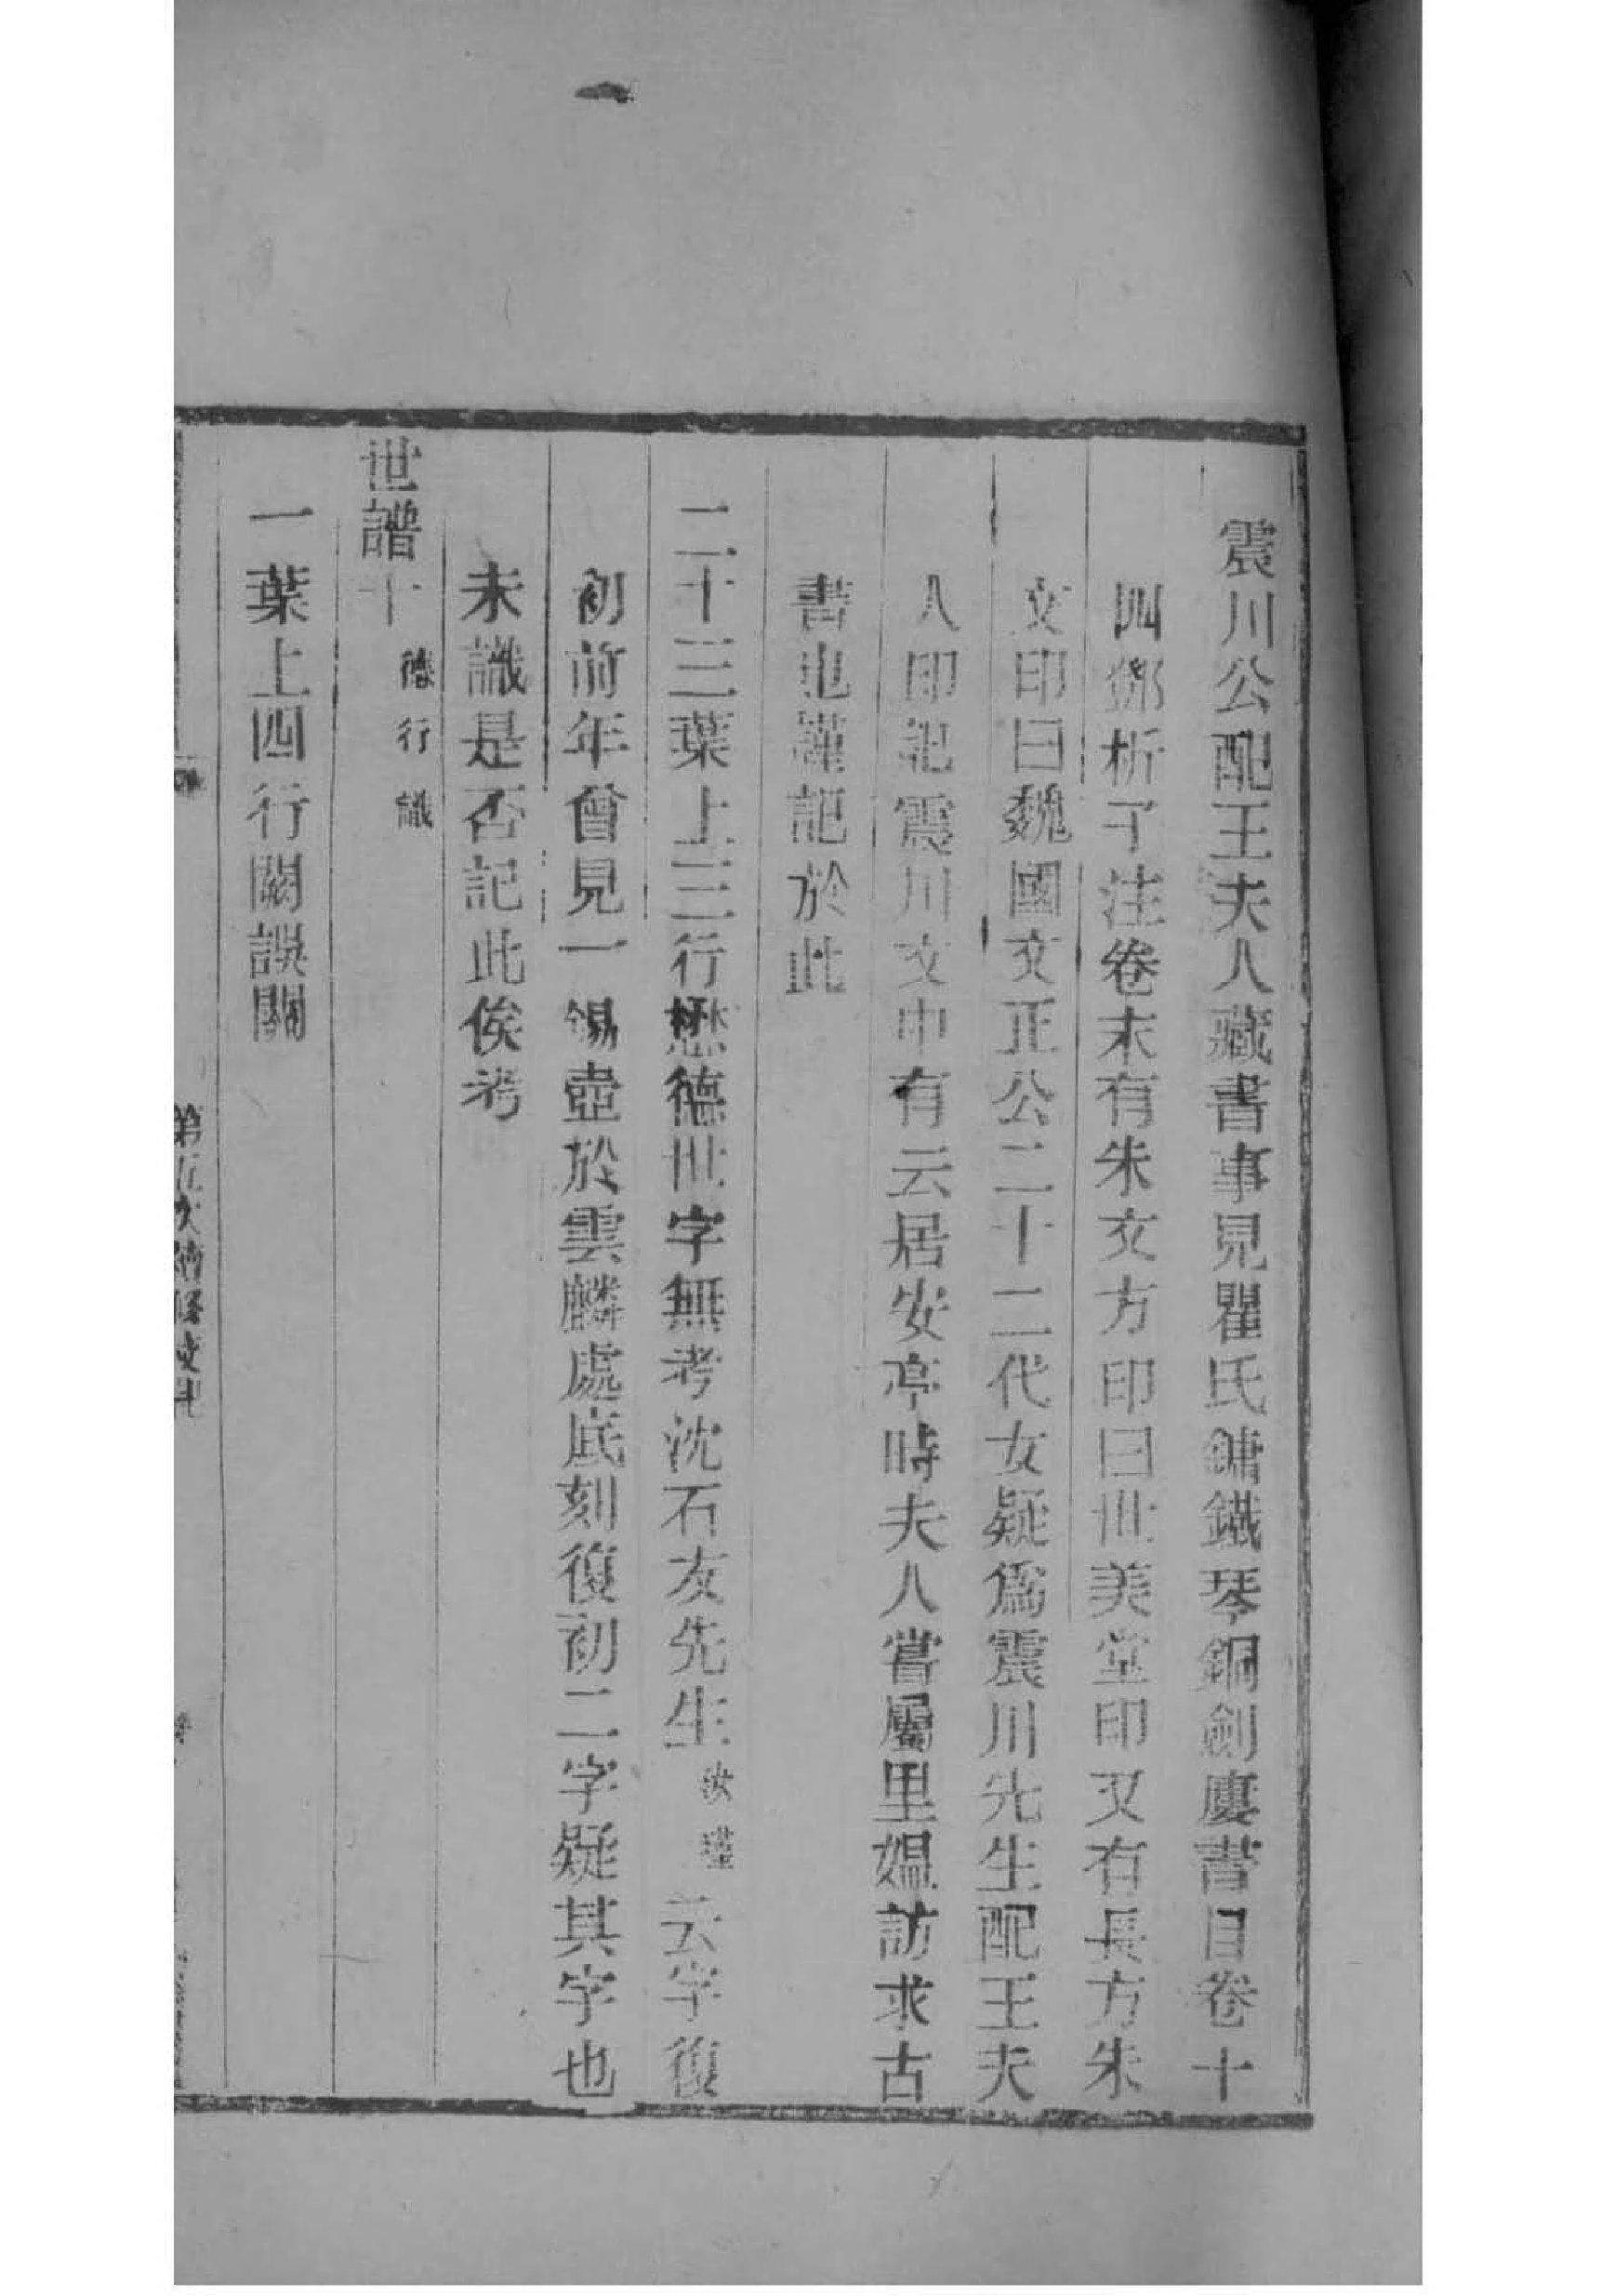 震川公配王夫人藏書事見瞿氏鏞鐵琴銅劍廔書目卷十
四鄧析子注卷末有朱文方印曰世美堂印又有長方朱
文印曰魏國文正公二十二代女疑爲震川先生配王夫
人印記震川文中有云居安亭時夫人嘗屬里媼訪求古
書也謹記於此
二十三葉上三行懋德世字無考沈石友先生汝瑾云字復
初前年曾見一錫壺於雲麟處底刻復初二字疑其字也
未識是否記此俟考
世譜十德行識
一葉上四行闕誤關
第五次續修